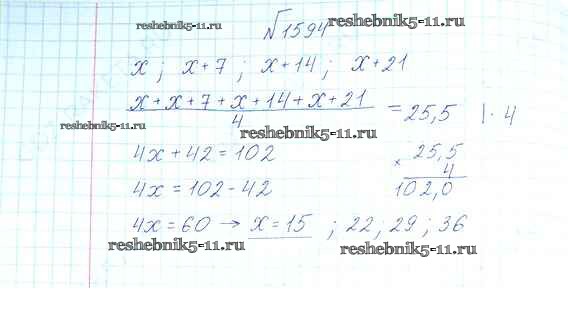 №1594
reshebnik5-11.ru
reshebnik5-11.ru
x ; x+7 ; x+14 ; x+21
x+x+7+x+14+x+21
4
= 25,5 | · 4
reshebnik5-11.ru
reshebnik5-11.ru
4x + 42 = 102
× 25,5
4
102,0
4x = 102 - 42
4x = 60 → x = 15 ; 22 ; 29 ; 36
reshebnik5-11.ru
reshebnik5-11.ru